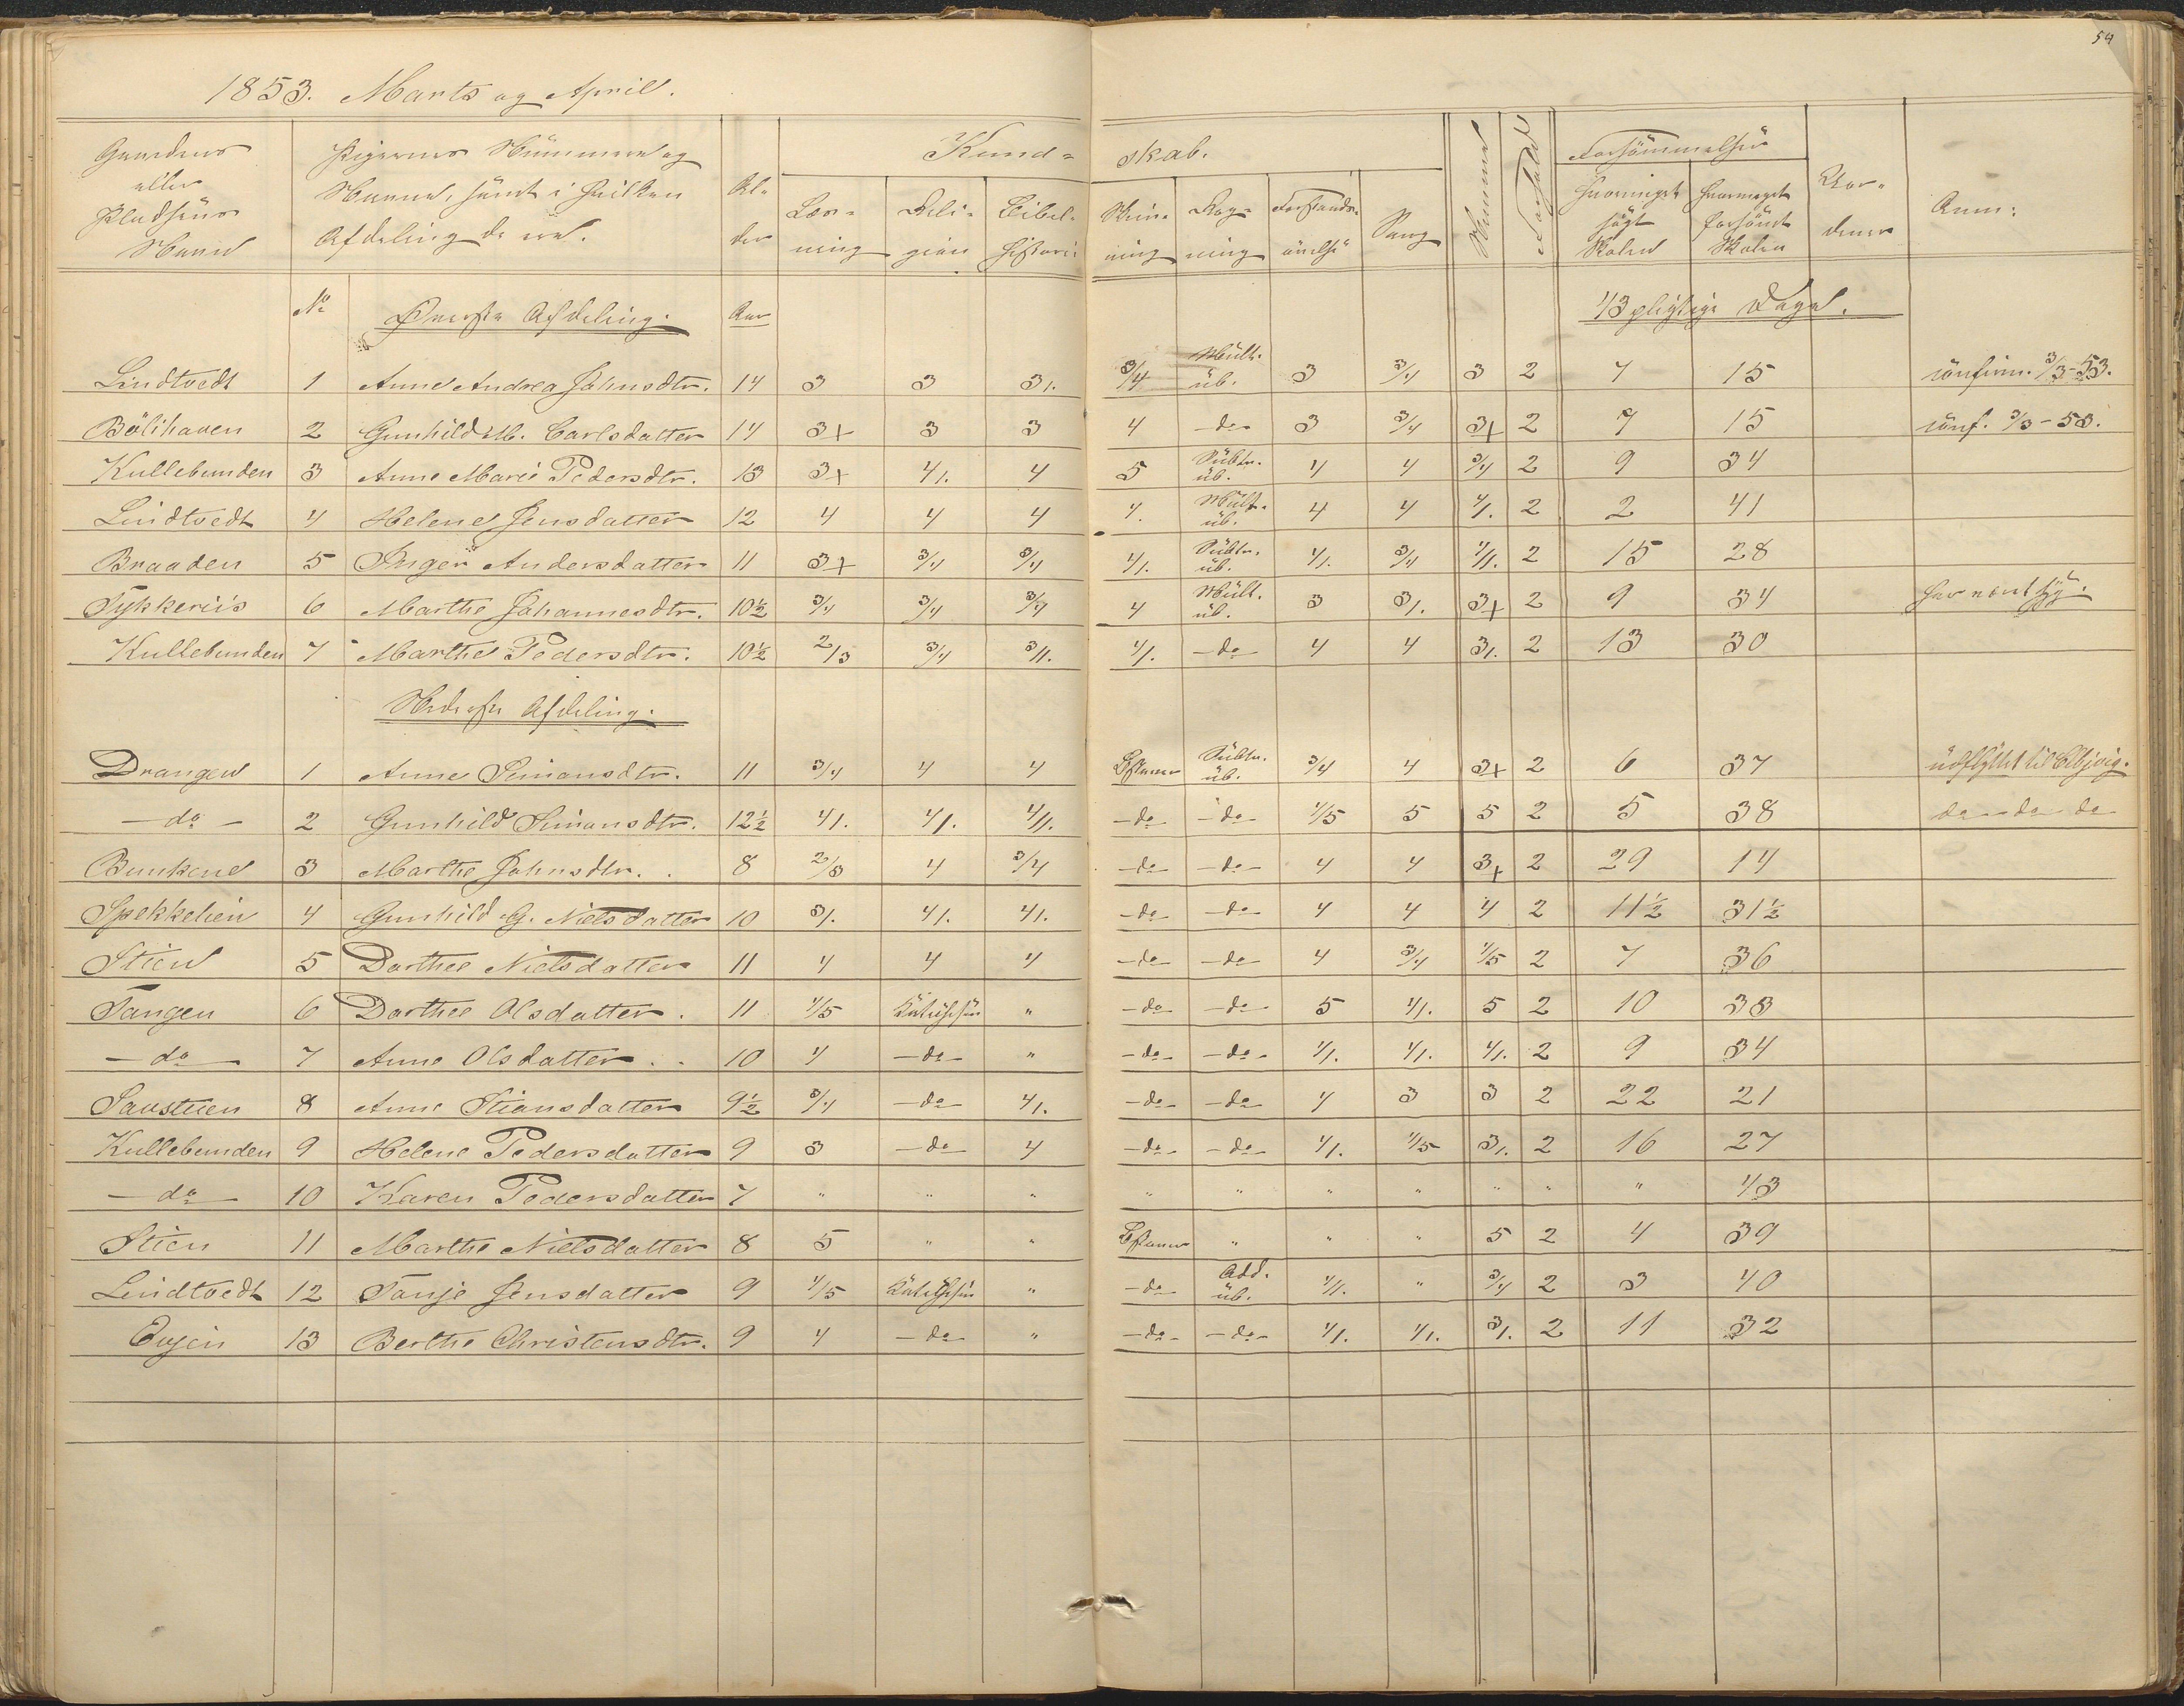 54
1853. Marts og April.
Gaardens eller Pladsens Navn | Pigernes Nummere og Navne, samt i hvilken Afdeling de ere. | Al-der | Kund-skab. | Forsømmelser | Anm:
Læs-ning | Reli-gion | Bibel-historie | Skriv-ning | Reg-ning | Forstands-øvelse | Sang | Nummer | Forhold | hvormeget søgt Skolen | hvormeget forsømt Skolen
No | Øverste Afdeling. | Aar | 43 pligtige Dage.
Lindtvedt 1 Anne Andrea Johnsdtr. 14 3 3 3/. 3/4 Mult. üb. 3 3/4 3 2 7 15 konfirm. 3/3-53.
Bölihaven 2 Gunhild M. Carlsdatter 14 3+ 3 3 4 -do- 3 3/4 3+ 2 7 15 konf. 3/3-53.
Kullebunden 3 Anne Marie Pedersdtr. 13 3+ 4/. 4 5 Subtr. üb. 4 4 3/4 2 9 34
Lindtvedt 4 Helene Jensdatter 12 4 4 4 4. Mult. üb. 4 4 4/. 2 2 41
Braaden 5 Inger Andersdatter 11 3+ 3/4 3/4 4/. Subtr. üb. 4/. 3/4 4/. 2 15 28
Tykkeriis 6 Marthe Johannesdtr. 10½ 3/4 3/4 3/4 4 Mult. üb. 3 3/. 3+ 2 9 34 har været syg.
Kullebunden 7 Marthe Pedersdtr. 10½ 2/3 3/4 3/. 4/. -do 4 4 3/. 2 13 30
Nederste Afdeling.
Drangen 1 Anne Simonsdtr. 11 3/4 4 4 Subtr. üb. 3/4 4 3+ 2 6 37 udflyttet til
-do- 2 Gunhild Simonsdtr. 12½ 4/. 4/. 4/. -do- -do- 4/5 5 5 2 5 38 do-do-do
Bunkene 3 Marthe Johnsdtr. 8 2/3 4 3/4 -do- -do- 4 4 3+ 2 29 14
Spekkelien 4 Gunhild G. Nielsdatter 10 3/. 4/. 4/. -do- -do- 4 4 4 2 11½ 31½
Stien 5 Dorthee Nielsdatter 11 4 4 4 -do- -do- 4 3/4 4/5 2 7 36
Tangen 6 Dorthee Olsdatter. 11 4/5 " -do- -do- 5 4/. 5 2 10 33
-do- 7 Anne Olsdatter.. 10 4 -do- " -do- -do- 4/. 4/. 4/. 2 9 34
Saustuen 8 Anne Stiansdatter 9½ 3/4 -do- 4/. -do- -do- 4 3 3 2 22 21
Kullebunden 9 Helene Pedersdatter 9 3 -do- 4 -do- -do- 4/. 4/5 3/. 2 16 27
-do- 10 Karen Pedersdatter 7 " " " " " " " " " " 43
Stien 11 Marthe Nielsdatter 8 5 " " " " " 5 2 4 39
Lindtvedt 12 Tanje Jensdatter 9 4/5 " -do- Add. üb. 4/. " 3/4 2 3 40
Eujen 13 Berthe Christensdtr. 9 4 -do- " -do- -do- 4/. 4/. 3/. 2 11 32